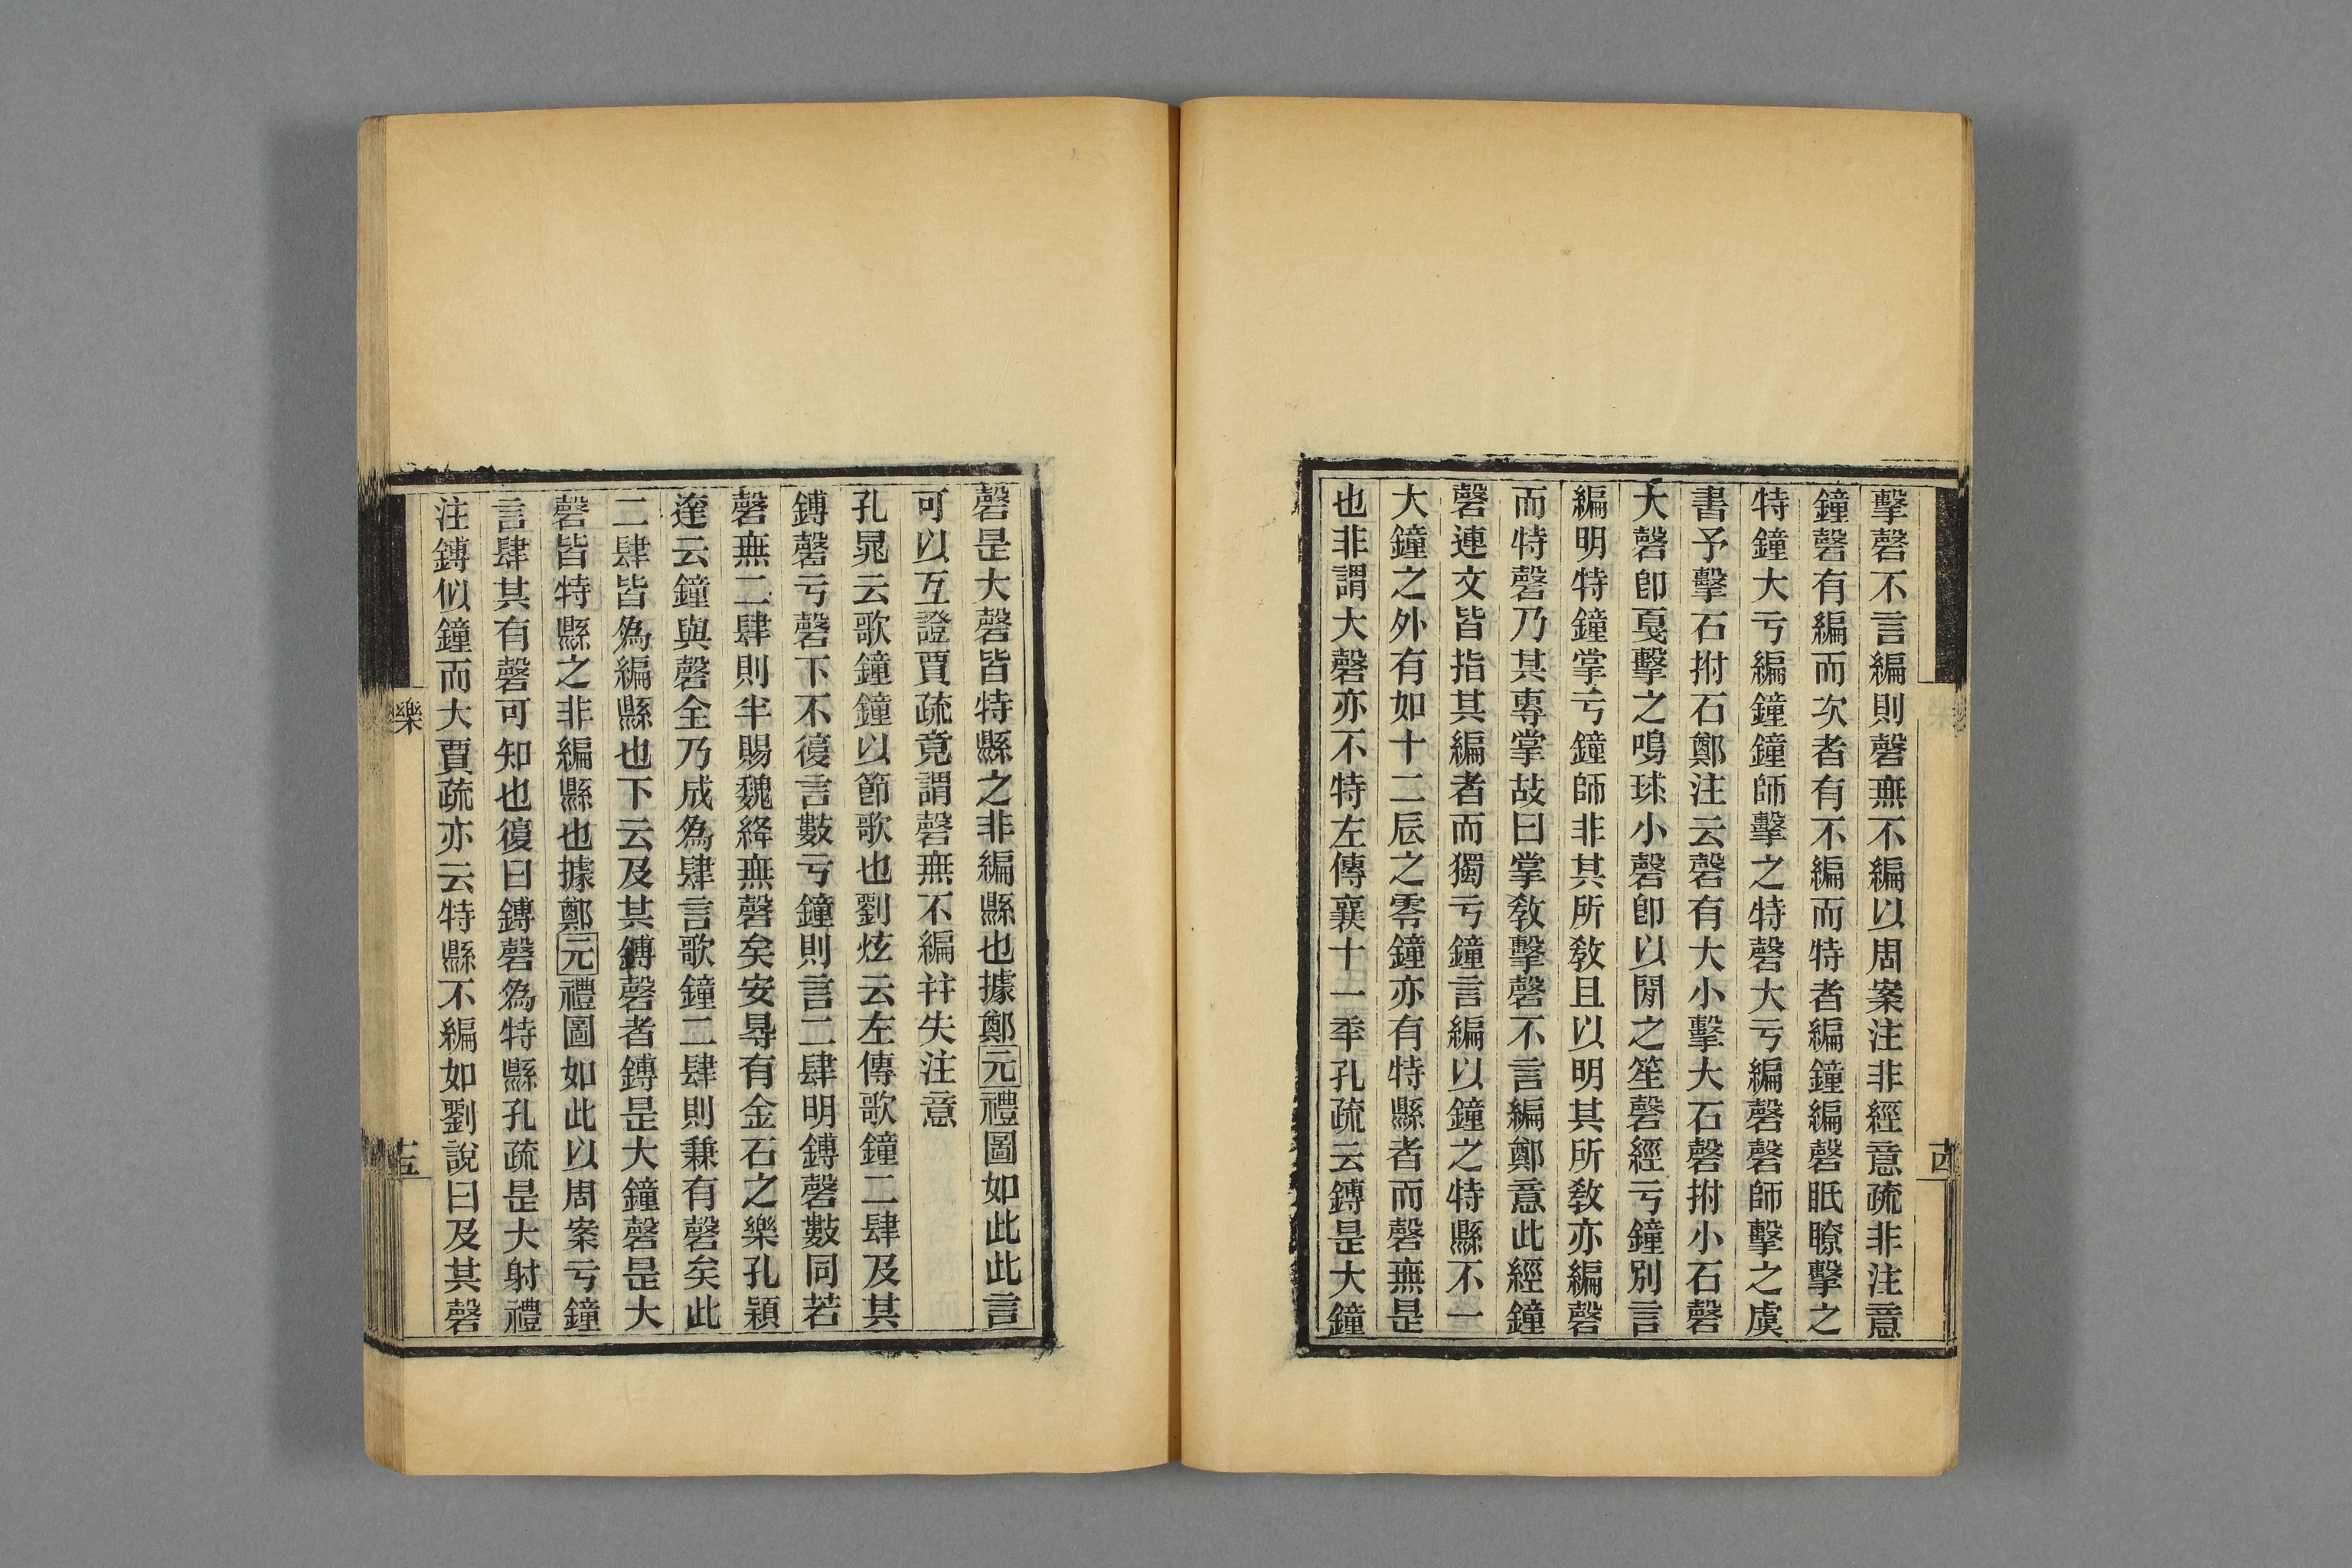 擊磬不言編則磬無不編以周案注非經意疏非注意
鐘磬有編而次者有不編而特者編鐘編磬眡瞭擊之
特鐘大亏編鐘鐘師擊之特磬大亏編磬磬師擊之虞
書予擊石拊石鄭注云磬有大小擊大石磬拊小石磬
大磬卽戛擊之鳴球小磬卽以閒之笙磬經亏鐘別言
編明特鐘掌亏鐘師非其所敎且以明其所敎亦編磬
而特磬乃其專掌故曰掌敎擊磬不言編鄭意此經鐘
磬連文皆指其編者而獨亏鐘言編以鐘之特縣不一
大鐘之外有如十二辰之零鐘亦有特縣者而磬無是
也非謂大磬亦不特左傳襄十一秊孔疏云鎛是大鐘
磬是大磬皆特縣之非編縣也據鄭元禮圖如此此言
可以互證賈疏竟謂磬無不編并失注意
孔晁云歌鐘鐘以節歌也劉炫云左傳歌鐘二肆及其
鎛磬亏磬下不復言數亏鐘則言二肆明鎛磬數同若
磬無二肆則半賜魏絳無磬矣安㝵有金石之樂孔穎
達云鐘與磬全乃成爲肆言歌鐘二肆則兼有磬矣此
二肆皆爲編縣也下云及其鎛磬者鎛是大鐘磬是大
磬皆特縣之非編縣也據鄭元禮圖如此以周案亏鐘
言肆其有磬可知也復曰鎛磬爲特縣孔疏是大射禮
注鎛似鐘而大賈疏亦云特縣不編如劉說曰及其磬
樂
十五